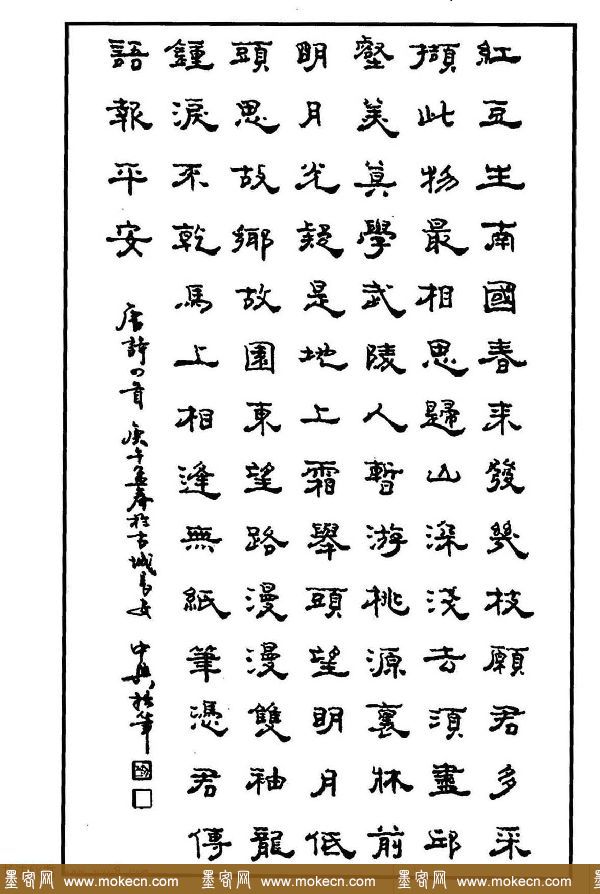 紅豆生南國春来發幾枝願君多采
擷此物最相思歸山深淺去須盡邱
壑美莫學武陵人暫游桃源裏牀前
明月光疑是地上霜舉頭望明月低
頭思故鄉故園東望路漫漫雙袖龍
鍾淚不乾馬上相逢無紙筆憑君傳
語報平安
唐詩四首 庚午孟春於古城長安 中興
墨客网 www.mokecn.com 墨客网 www.mokecn.com 墨客网 www.mokecn.com